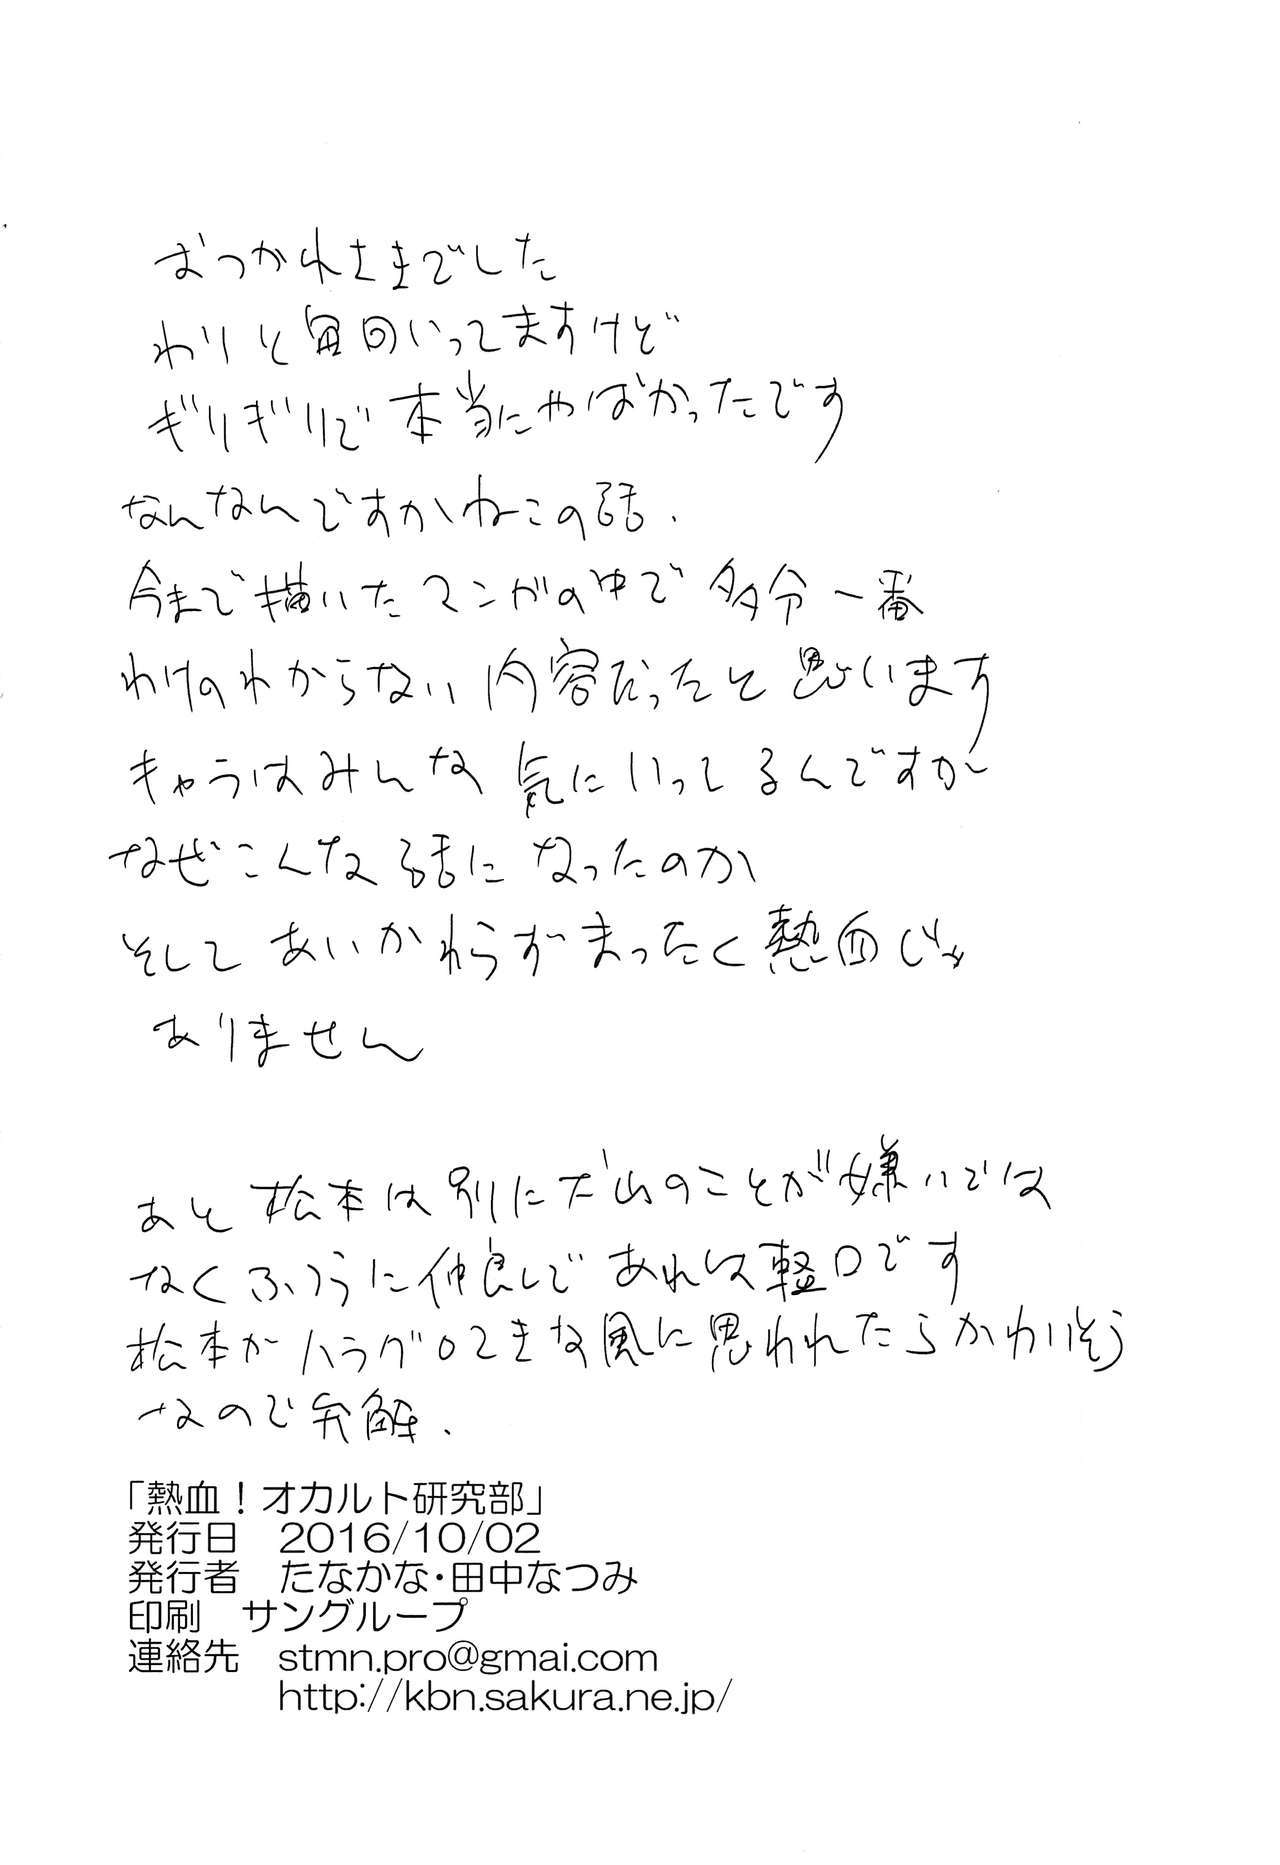 おつかれさまでした
わりと毎回いってますけど
ギリギリで本当にやばかったです
なんなんですかねこの話.
今まで描いたマンガの中で多分一番
わけのわからない内容だったと思います
キャラはみんな気にいってるんですが
なぜこんな話になったのか
そしてあいかわらずまったく熱血じゃ
ありません
あと松本は別に犬山のことが嫌いでは
なくふつうに仲良しであれは軽口です
松本がハラグロできな風に思われたらかわいそう
なので弁解.
「熱血！オカルト研究部」
発行日　2016/10/02
発行者　たなかな・田中なつみ
印刷　サングループ
連絡先　stmn.pro@gmai.com
http://kbn.sakura.ne.jp/